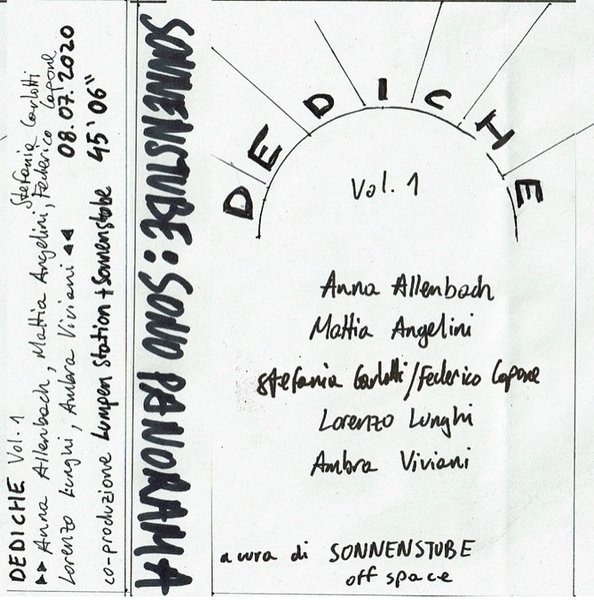 DEDICHE Vol. 1
▸▸ Anna Allenbach, Mattia Angelini, Stefania Carlotti, Federico Capone
Lorenzo Lunghi, Ambra Viviani ◂◂ 08.07.2020
co-produzione Lumpen Station + Sonnenstube 45'06"
SONNENSTUBE: SONO PANORAMA
DEDICHE
Vol. 1
Anna Allenbach
Mattia Angelini
Stefania Carlotti/Federico Capone
Lorenzo Lunghi
Ambra Viviani
a cura di SONNENSTUBE
off space